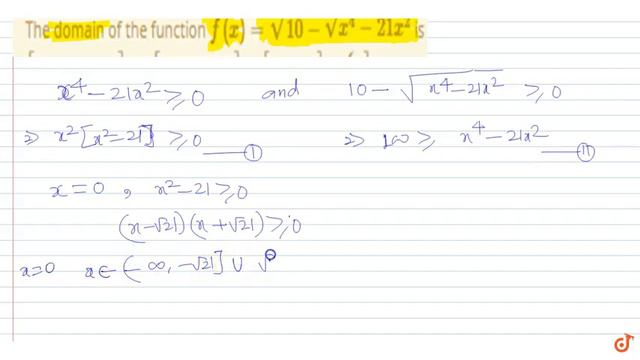 The domain of the function f(x) = √10 − √x⁴ − 21x² is
x⁴ − 21x² ⩾ 0 and 10 − √(x⁴ − 21x²) ⩾ 0
⇒ x² [x² − 21] ⩾ 0 —— Ⓘ ⇒ 100 ⩾ x⁴ − 21x² —— Ⓘⓘ
x = 0 , x² − 21 ⩾ 0
(x − √21) (x + √21) ⩾ 0
x = 0 x ∈ (−∞, −√21] ∪
doubtnut